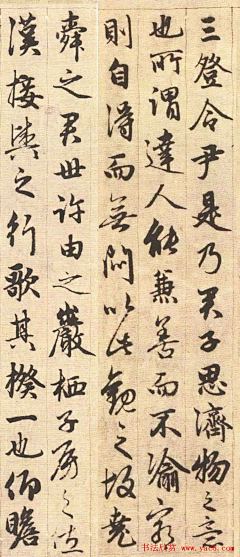 三登令尹是乃君子思濟物之意
也所謂達人能兼善而不渝窮
則自得而無悶以此觀之故堯
舜之君世許由之巖栖子房之佐
漢接輿之行歌其揆一也仰瞻
书法欣赏 www.yac8.com